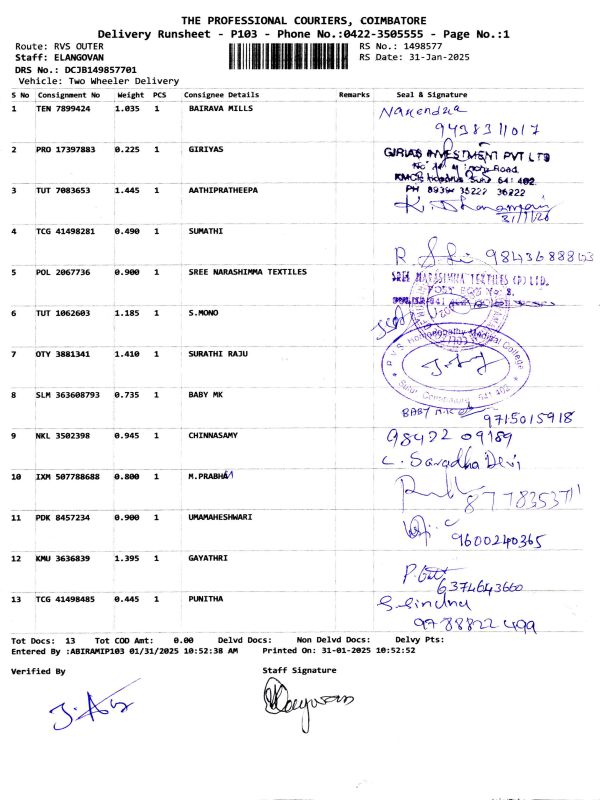 THE PROFESSIONAL COURIERS, COIMBATORE
Delivery Runsheet - P103 - Phone No.:0422-3505555 - Page No.:1
Route: RVS OUTER RS No.: 1498577
Staff: ELANGOVAN RS Date: 31-Jan-2025
DRS No.: DCJB149857701
Vehicle: Two Wheeler Delivery
S No Consignment No Weight PCS Consignee Details Remarks Seal & Signature
1 TEN 7899424 1.035 1 BAIRAVA MILLS Narendra
9438311017
2 PRO 17397883 0.225 1 GIRIYAS GIRIAS INVESTMENT PVT LTD
Road
KMCH 641 402
3 TUT 7083653 1.445 1 AATHIPRATHEEPA PH 35222 36222
K.
4 TCG 41498281 0.490 1 SUMATHI
R. 9843688803
5 POL 2067736 0.900 1 SREE NARASHIMMA TEXTILES SREE NARASIMMA TEXTILES (P) LTD.
POST BOX No: 8.
6 TUT 1062603 1.185 1 S.MONO
7 OTY 3881341 1.410 1 SURATHI RAJU R V S Homoeopathy Medical College
Sulur Coimbatore 641 402
8 SLM 363608793 0.735 1 BABY MK BABY M.K
9715015918
9 NKL 3502398 0.945 1 CHINNASAMY 98422 09189
C. Saradha Devi
10 IXM 507788688 0.800 1 M.PRABHA
8778353711
11 PDK 8457234 0.900 1 UMAMAHESHWARI
9600240365
12 KMU 3636839 1.395 1 GAYATHRI
6374643660
13 TCG 41498485 0.445 1 PUNITHA
9788822499
Tot Docs: 13 Tot COD Amt: 0.00 Delvd Docs: Non Delvd Docs: Delvy Pts:
Entered By :ABIRAMIP103 01/31/2025 10:52:38 AM Printed On: 31-01-2025 10:52:52
Verified By Staff Signature